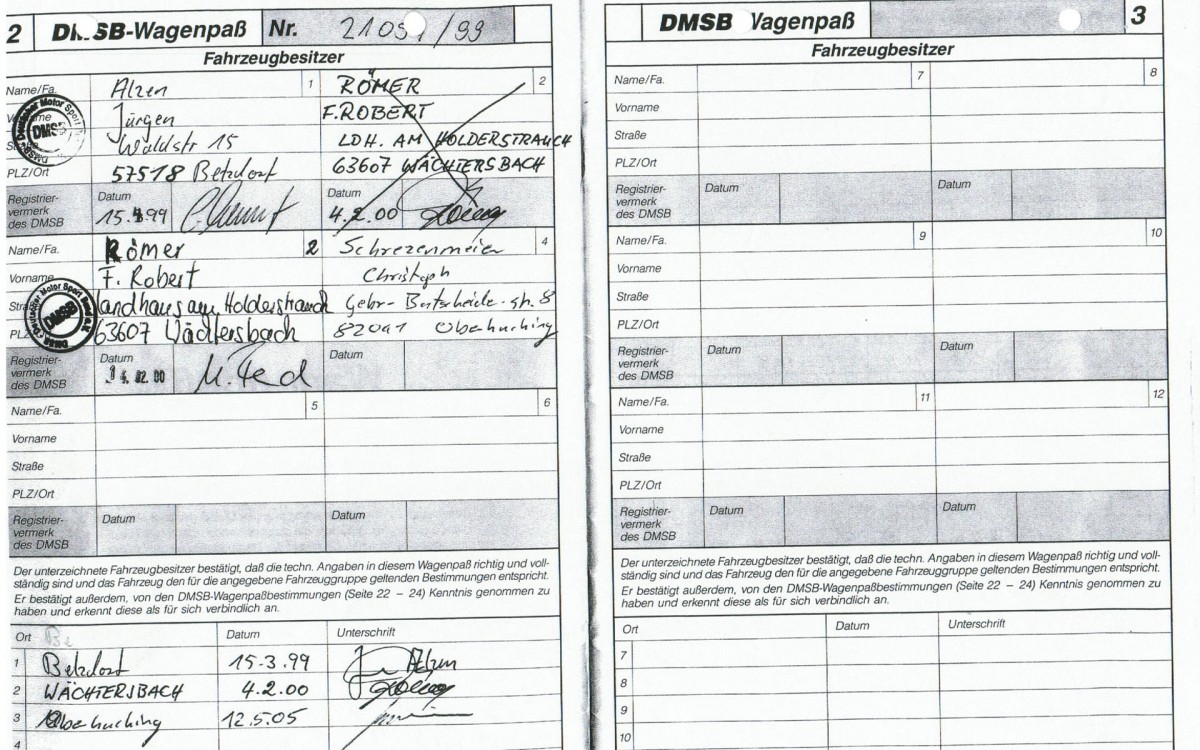 2 DMSB-Wagenpaß Nr. /99
Fahrzeugbesitzer
Name/Fa. Alzen 1 RÖMER 2
Vorname Jürgen F. ROBERT
Straße Waldstr 15 LDH. AM HOLDERSTRAUCH
PLZ/Ort 57518 Betzdorf 63607 WÄCHTERSBACH
Registrier-
vermerk
des DMSB
Datum
15.4.99
Datum
4.2.00
DMSB
Name/Fa. Römer 2 Schrezenmeier 4
Vorname F. Robert Christoph
Straße Landhaus am Holderstrauch
PLZ/Ort 63607 Wächtersbach 82041 Oberhaching
Registrier-
vermerk
des DMSB
Datum
02. 00
Datum
DMSB
Name/Fa. 5 6
Vorname
Straße
PLZ/Ort
Registrier-
vermerk
des DMSB
Datum
Datum
Der unterzeichnete Fahrzeugbesitzer bestätigt, daß die techn. Angaben in diesem Wagenpaß richtig und voll-
ständig sind und das Fahrzeug den für die angegebene Fahrzeuggruppe geltenden Bestimmungen entspricht.
Er bestätigt außerdem, von den DMSB-Wagenpaßbestimmungen (Seite 22 – 24) Kenntnis genommen zu
haben und erkennt diese als für sich verbindlich an.
Ort Datum Unterschrift
1 Betzdorf 15.3.99 Alzen
2 WÄCHTERSBACH 4.2.00
3 Oberhaching 12.5.05
4
DMSB Wagenpaß 3
Fahrzeugbesitzer
Name/Fa. 7 8
Vorname
Straße
PLZ/Ort
Registrier-
vermerk
des DMSB
Datum
Datum
Name/Fa. 9 10
Vorname
Straße
PLZ/Ort
Registrier-
vermerk
des DMSB
Datum
Datum
Name/Fa. 11 12
Vorname
Straße
PLZ/Ort
Registrier-
vermerk
des DMSB
Datum
Datum
Der unterzeichnete Fahrzeugbesitzer bestätigt, daß die techn. Angaben in diesem Wagenpaß richtig und voll-
ständig sind und das Fahrzeug den für die angegebene Fahrzeuggruppe geltenden Bestimmungen entspricht.
Er bestätigt außerdem, von den DMSB-Wagenpaßbestimmungen (Seite 22 – 24) Kenntnis genommen zu
haben und erkennt diese als für sich verbindlich an.
Ort Datum Unterschrift
7
8
9
10